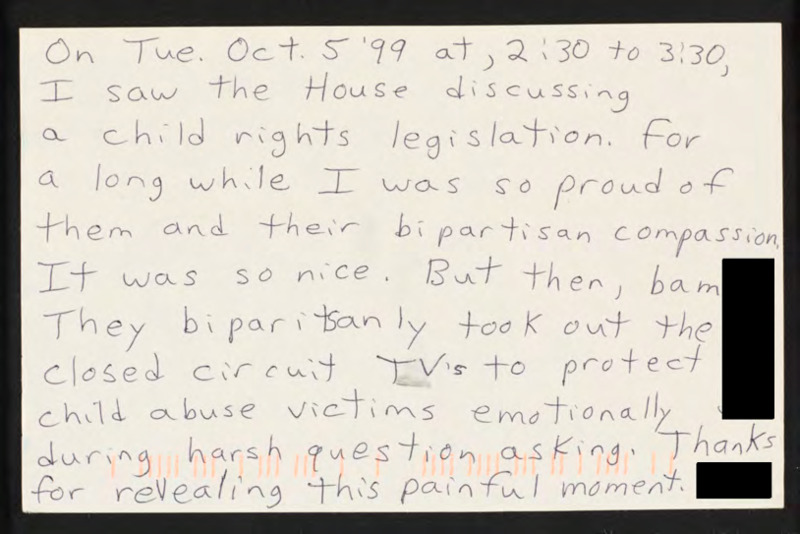 On Tue. Oct. 5 '99 at, 2:30 to 3:30,
I saw the House discussing
a child rights legislation. For
a long while I was so proud of
them and their bipartisan compassion.
It was so nice. But then, bam
They biparitsanly took out the
closed circuit TV's to protect
child abuse victims emotionally
during harsh question asking. Thanks
for revealing this painful moment.